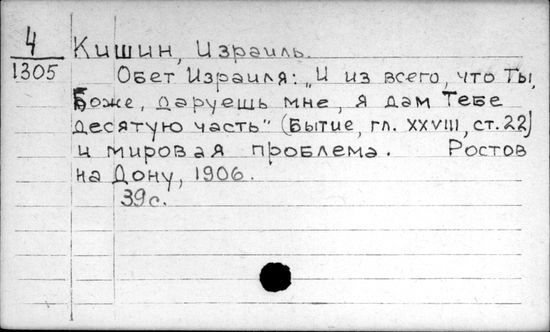 4
1305
Кишин, Израиль.
Обет Израиля: „И из всего, что Ты,
Боже, даруешь мне, я дам Тебе
десятую часть" (Бытие, гл. XXVIII, ст. 22)
и мировая проблема. Ростов
на Дону, 1906.
39с.